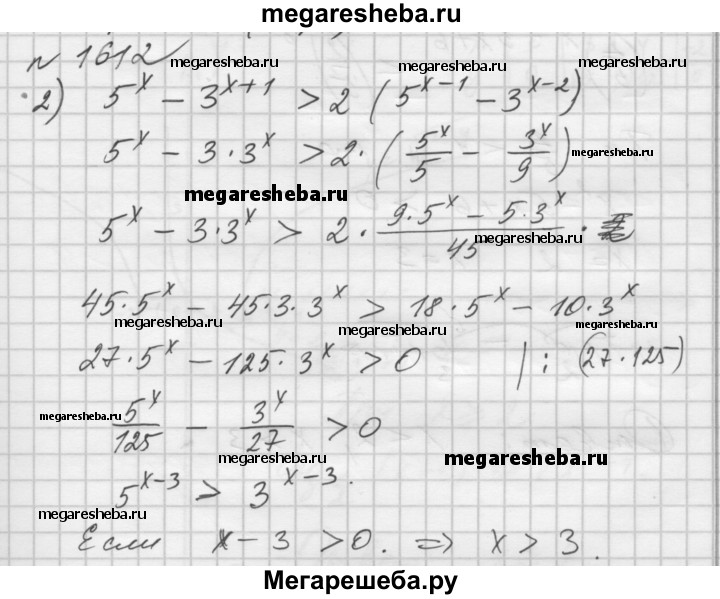 megaresheba.ru
N 1612 megaresheba.ru megaresheba.ru megaresheba.ru
2) 5^x − 3^{x+1} > 2 (5^{x−1} − 3^{x−2})
5^x − 3·3^x > 2·(5^x/5 − 3^x/9) megaresheba.ru
megaresheba.ru
5^x − 3·3^x > 2·(9·5^x − 5·3^x)/45 ·
megaresheba.ru
45·5^x − 45·3·3^x > 18·5^x − 10·3^x
megaresheba.ru megaresheba.ru megaresheba.ru
27·5^x − 125·3^x > 0 | : (27·125)
megaresheba.ru
5^x/125 − 3^x/27 > 0
megaresheba.ru megaresheba.ru
5^{x−3} > 3^{x−3}.
megaresheba.ru
Если x−3 > 0. ⇒ x > 3.
Мегарешеба.ру